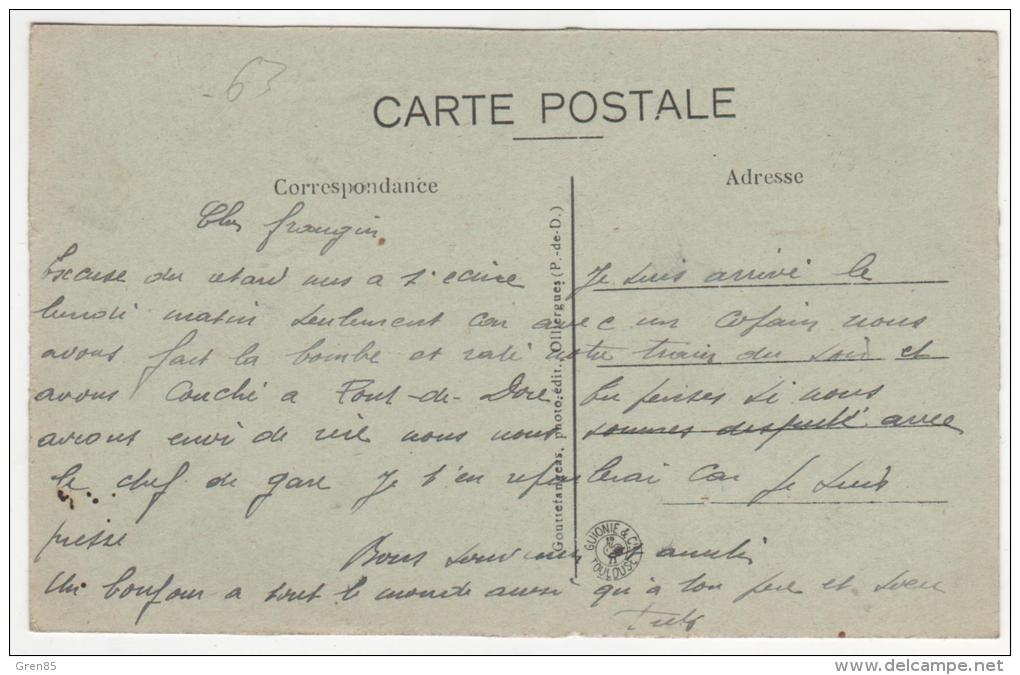 -63
CARTE POSTALE
Correspondance
Adresse
Cher frangin
Excuse du retard mis a t'ecrire Je suis arrivé le
lundi matin seulement car avec un copain nous
avons fait la bombe et raté notre train du soir et
avons couché a Pont-de-Dore tu penses si nous
avions envi de rire nous nous sommes disputé avec
le chef de gare Je t'en reparlerai car Je suis
presse
Bons souvenirs
Un bonjour a tout le monde aussi qu'à ton pere et soeur
Gouttefangeas, photo-édit., Olliergues (P.-de-D.)
GUIONIE & Cie TOULOUSE
Gren85
www.delcampe.net